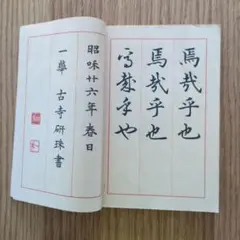 焉哉乎也
焉哉乎也
焉哉乎也
昭和廿六年春日
一華 古寺研珠書